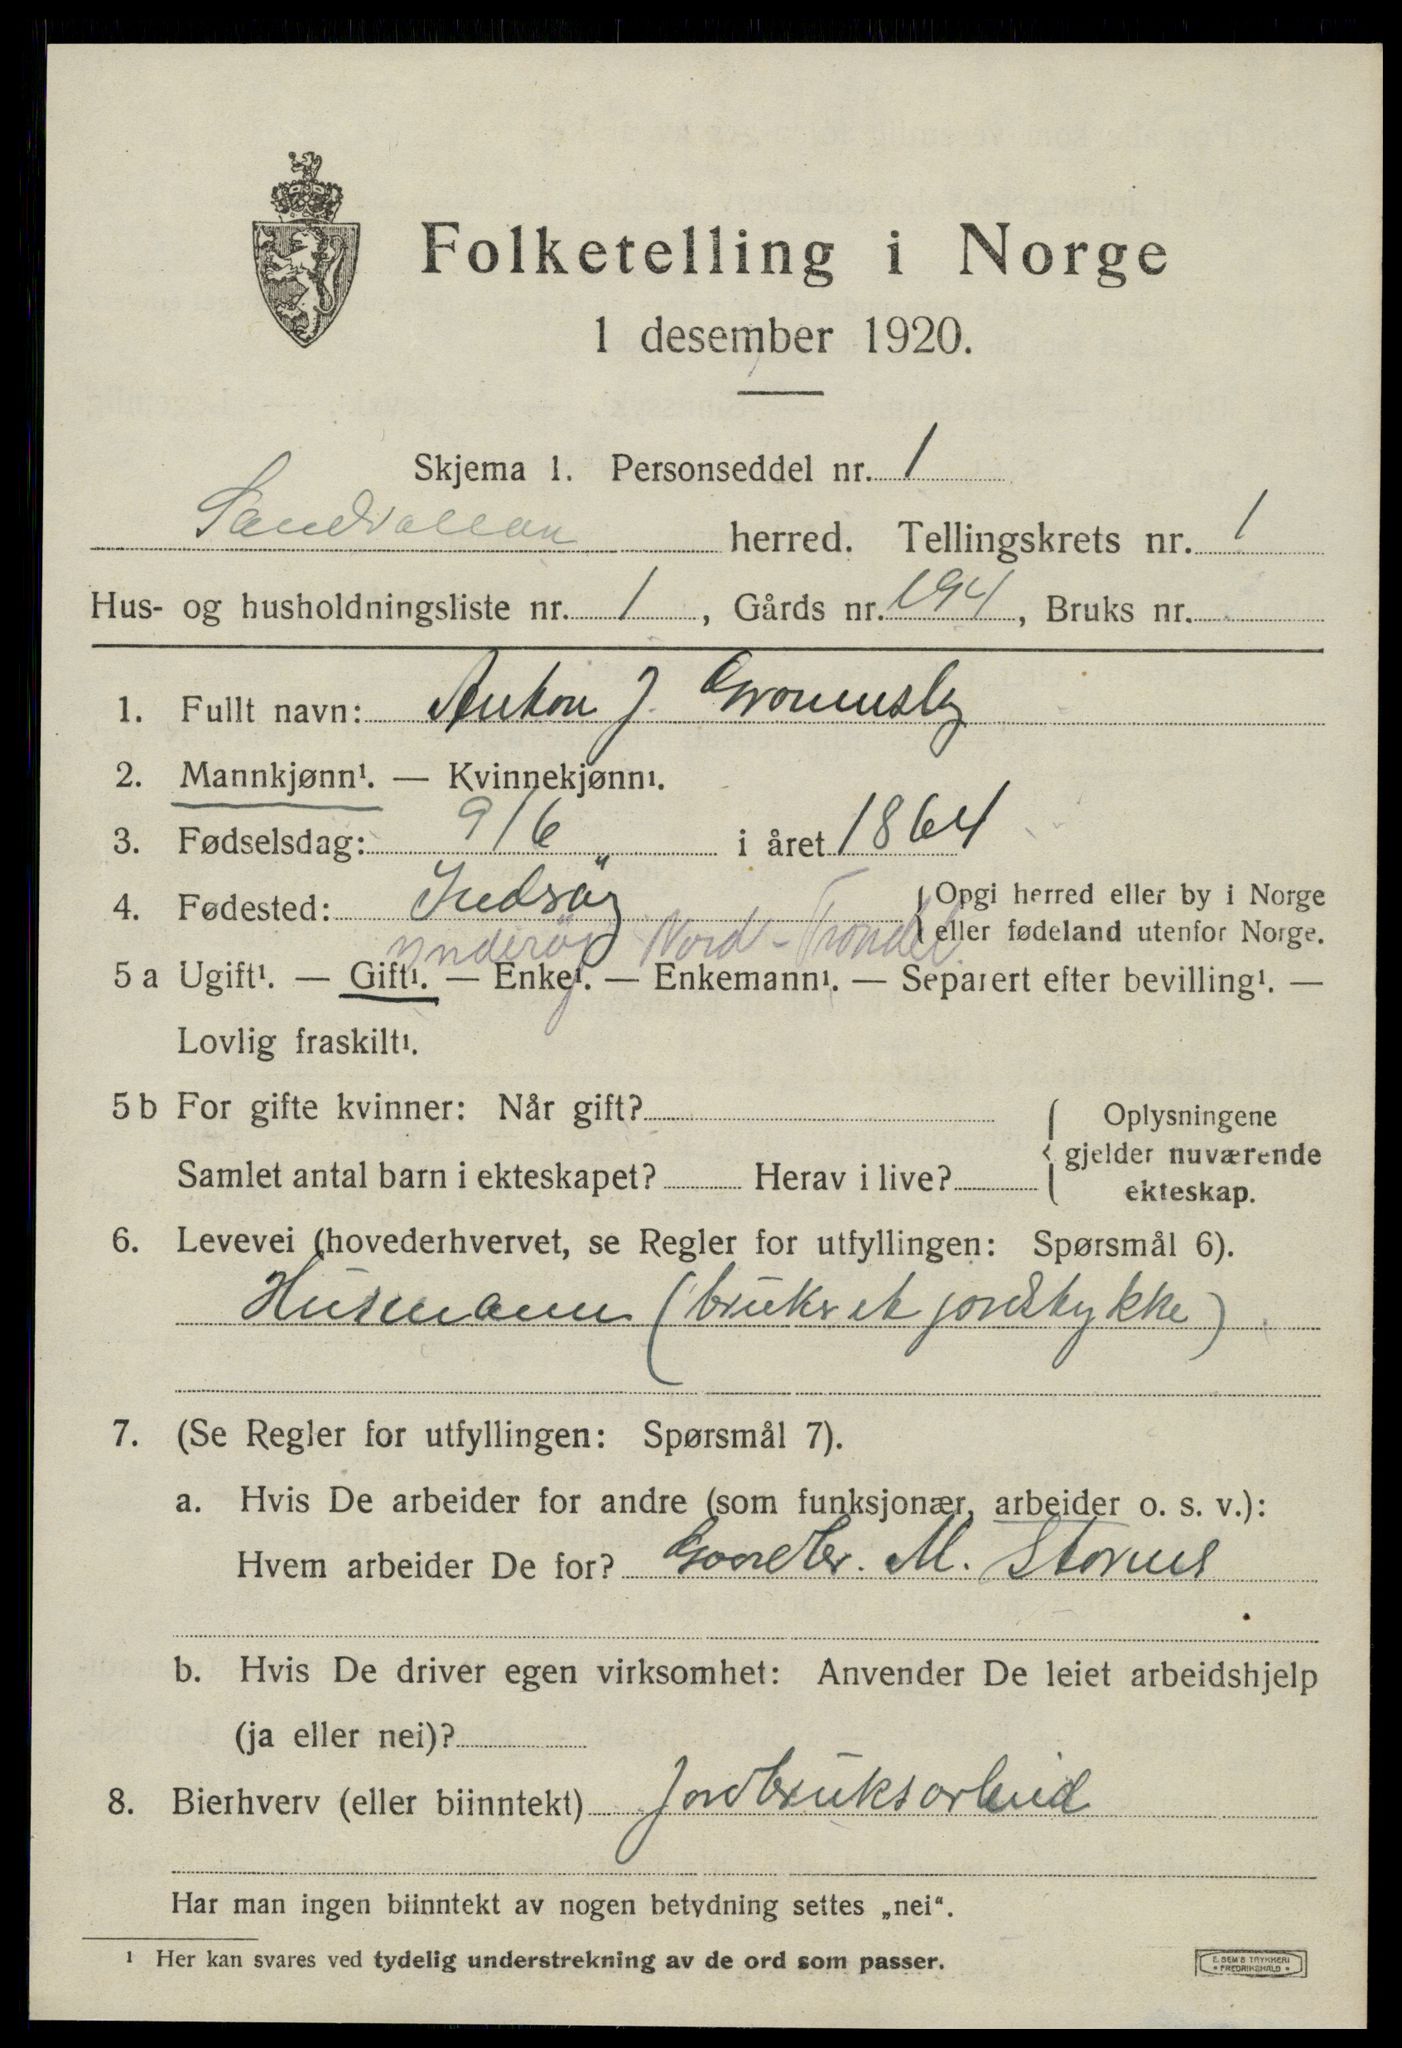 Folketelling i Norge
1 desember 1920.
Skjema 1. Personseddel nr. 1
Sandvollan herred. Tellingskrets nr. 1
Hus- og husholdningsliste nr. 1, Gårds nr. 194, Bruks nr.
1. Fullt navn: Anton J. Gromnsby
2. Mannkjønn¹. — Kvinnekjønn¹.
3. Fødselsdag: 9/6 i året 1864
4. Fødested: Indröy { Opgi herred eller by i Norge
Ynderöy Nord-Trondel. eller fødeland utenfor Norge.
5 a Ugift¹. — Gift¹. — Enke¹. — Enkemann¹. — Separert efter bevilling¹. —
Lovlig fraskilt¹.
5 b For gifte kvinner: Når gift? Oplysningene
gjelder nuværende
Samlet antal barn i ekteskapet? Herav i live? ekteskap.
6. Levevei (hovederhvervet, se Regler for utfyllingen: Spørsmål 6).
Husmann (bruker et jordstykke)
7. (Se Regler for utfyllingen: Spørsmål 7).
a. Hvis De arbeider for andre (som funksjonær, arbeider o. s. v.):
Hvem arbeider De for? Gordbr. M. Stornes
b. Hvis De driver egen virksomhet: Anvender De leiet arbeidshjelp
(ja eller nei)?
8. Bierhverv (eller biinntekt) Jordbruksarbeid
Har man ingen biinntekt av nogen betydning settes „nei“.
¹ Her kan svares ved tydelig understrekning av de ord som passer.
E. SEM'S TRYKKERI
• FREDRIKSHALD •